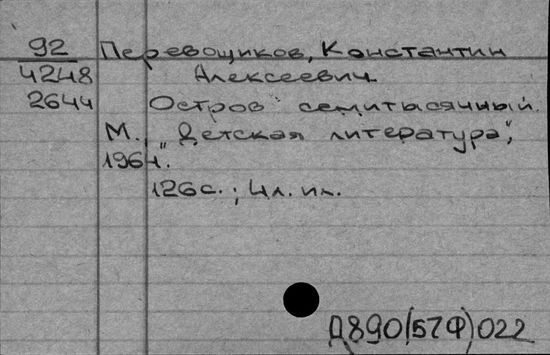 92 Перевощиков, Константин
4248 Алексеевич.
2644 Остров семитысячный.
М., "Детская литература",
1964.
126с.; 4л.ил.
Д890(57Ф)022